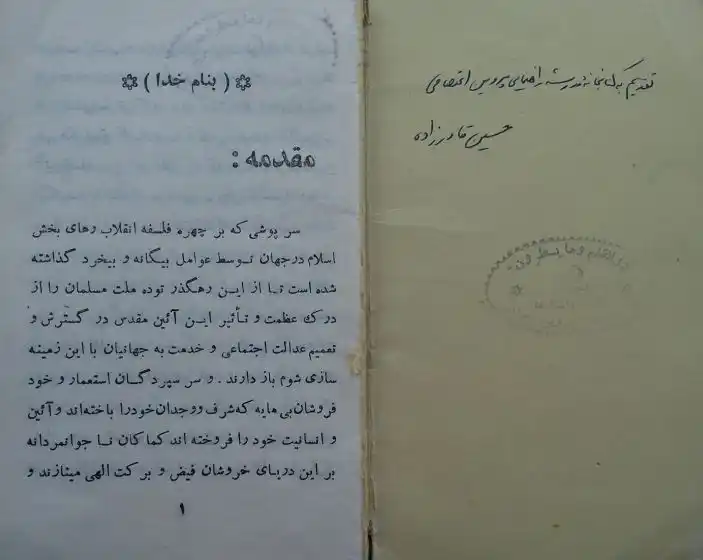 تقدیم به کتابخانه مدرسه راهنمایی پروین اعتصامی
حسین قادرزاده
ن والقلم وما یسطرون
❊ ( بنام خدا ) ❊
مقدمه :
سر پوشی که بر چهره فلسفه انقلاب رهای بخش
اسلام درجهان توسط عوامل بیگانه و بیخرد گذاشته
شده است تـا از ایـن رهگذر توده ملت مسلمان را از
درك عظمت و تـأثیر ایـن آئین مقدس در گسترش و
تعمیم عدالت اجتماعی و خدمت به جهانیان با این زمینه
سازی شوم باز دارند . و سر سپردگـان استعمار و خود
فروشان بی مایه که شرف ووجدان خودرا باخته اند و آئین
و انسانیت خود را فروخته اند کماکان نـا جوانمردانه
بر این دریـای خروشان فیض و بر کت الهی میتازند و
۱